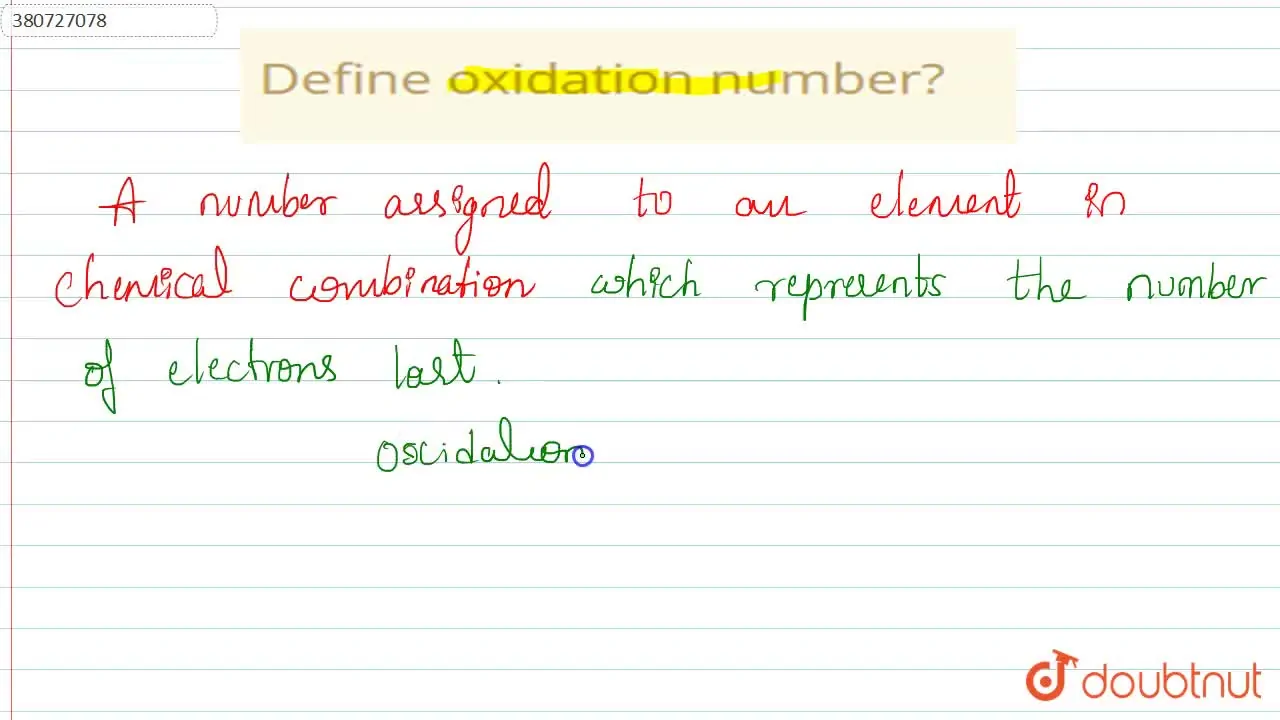 380727078
Define oxidation number?
A number assigned to an element in
chemical combination which represents the number
of electrons lost.
oxidation
doubtnut